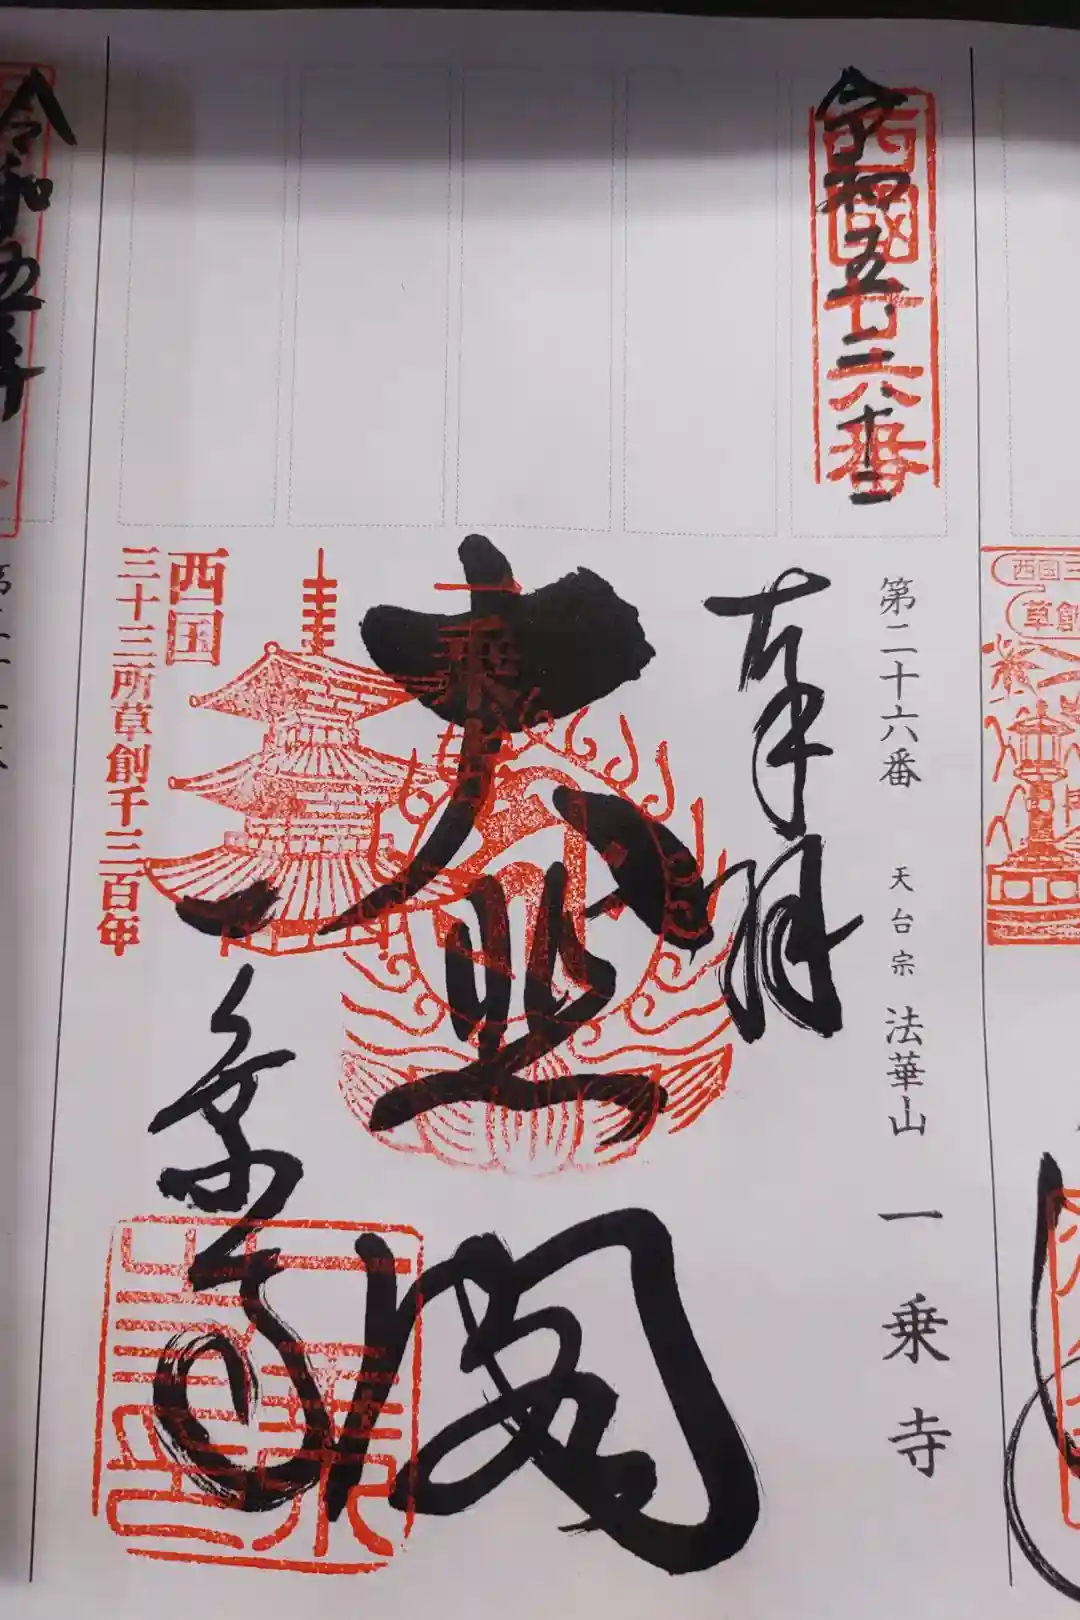 西國
廿六番
令和五
十二
第二十六番 天台宗 法華山 一乗寺
奉拝
大悲閣
一乗寺
西国
三十三所草創千三百年
令和五年
西国三
草創